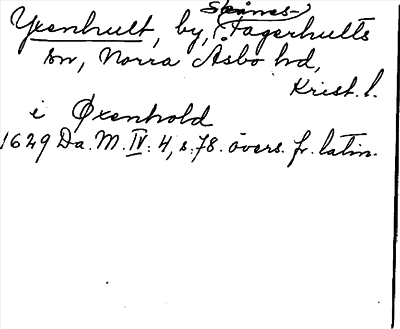 Skånes-
Yxenhult, by, Fagerhults
sn, Norra Åsbo hd,
Krist. l.
i Øxenhold
1629 Da. M. IV: 4, s. 78. övers. fr. latin.